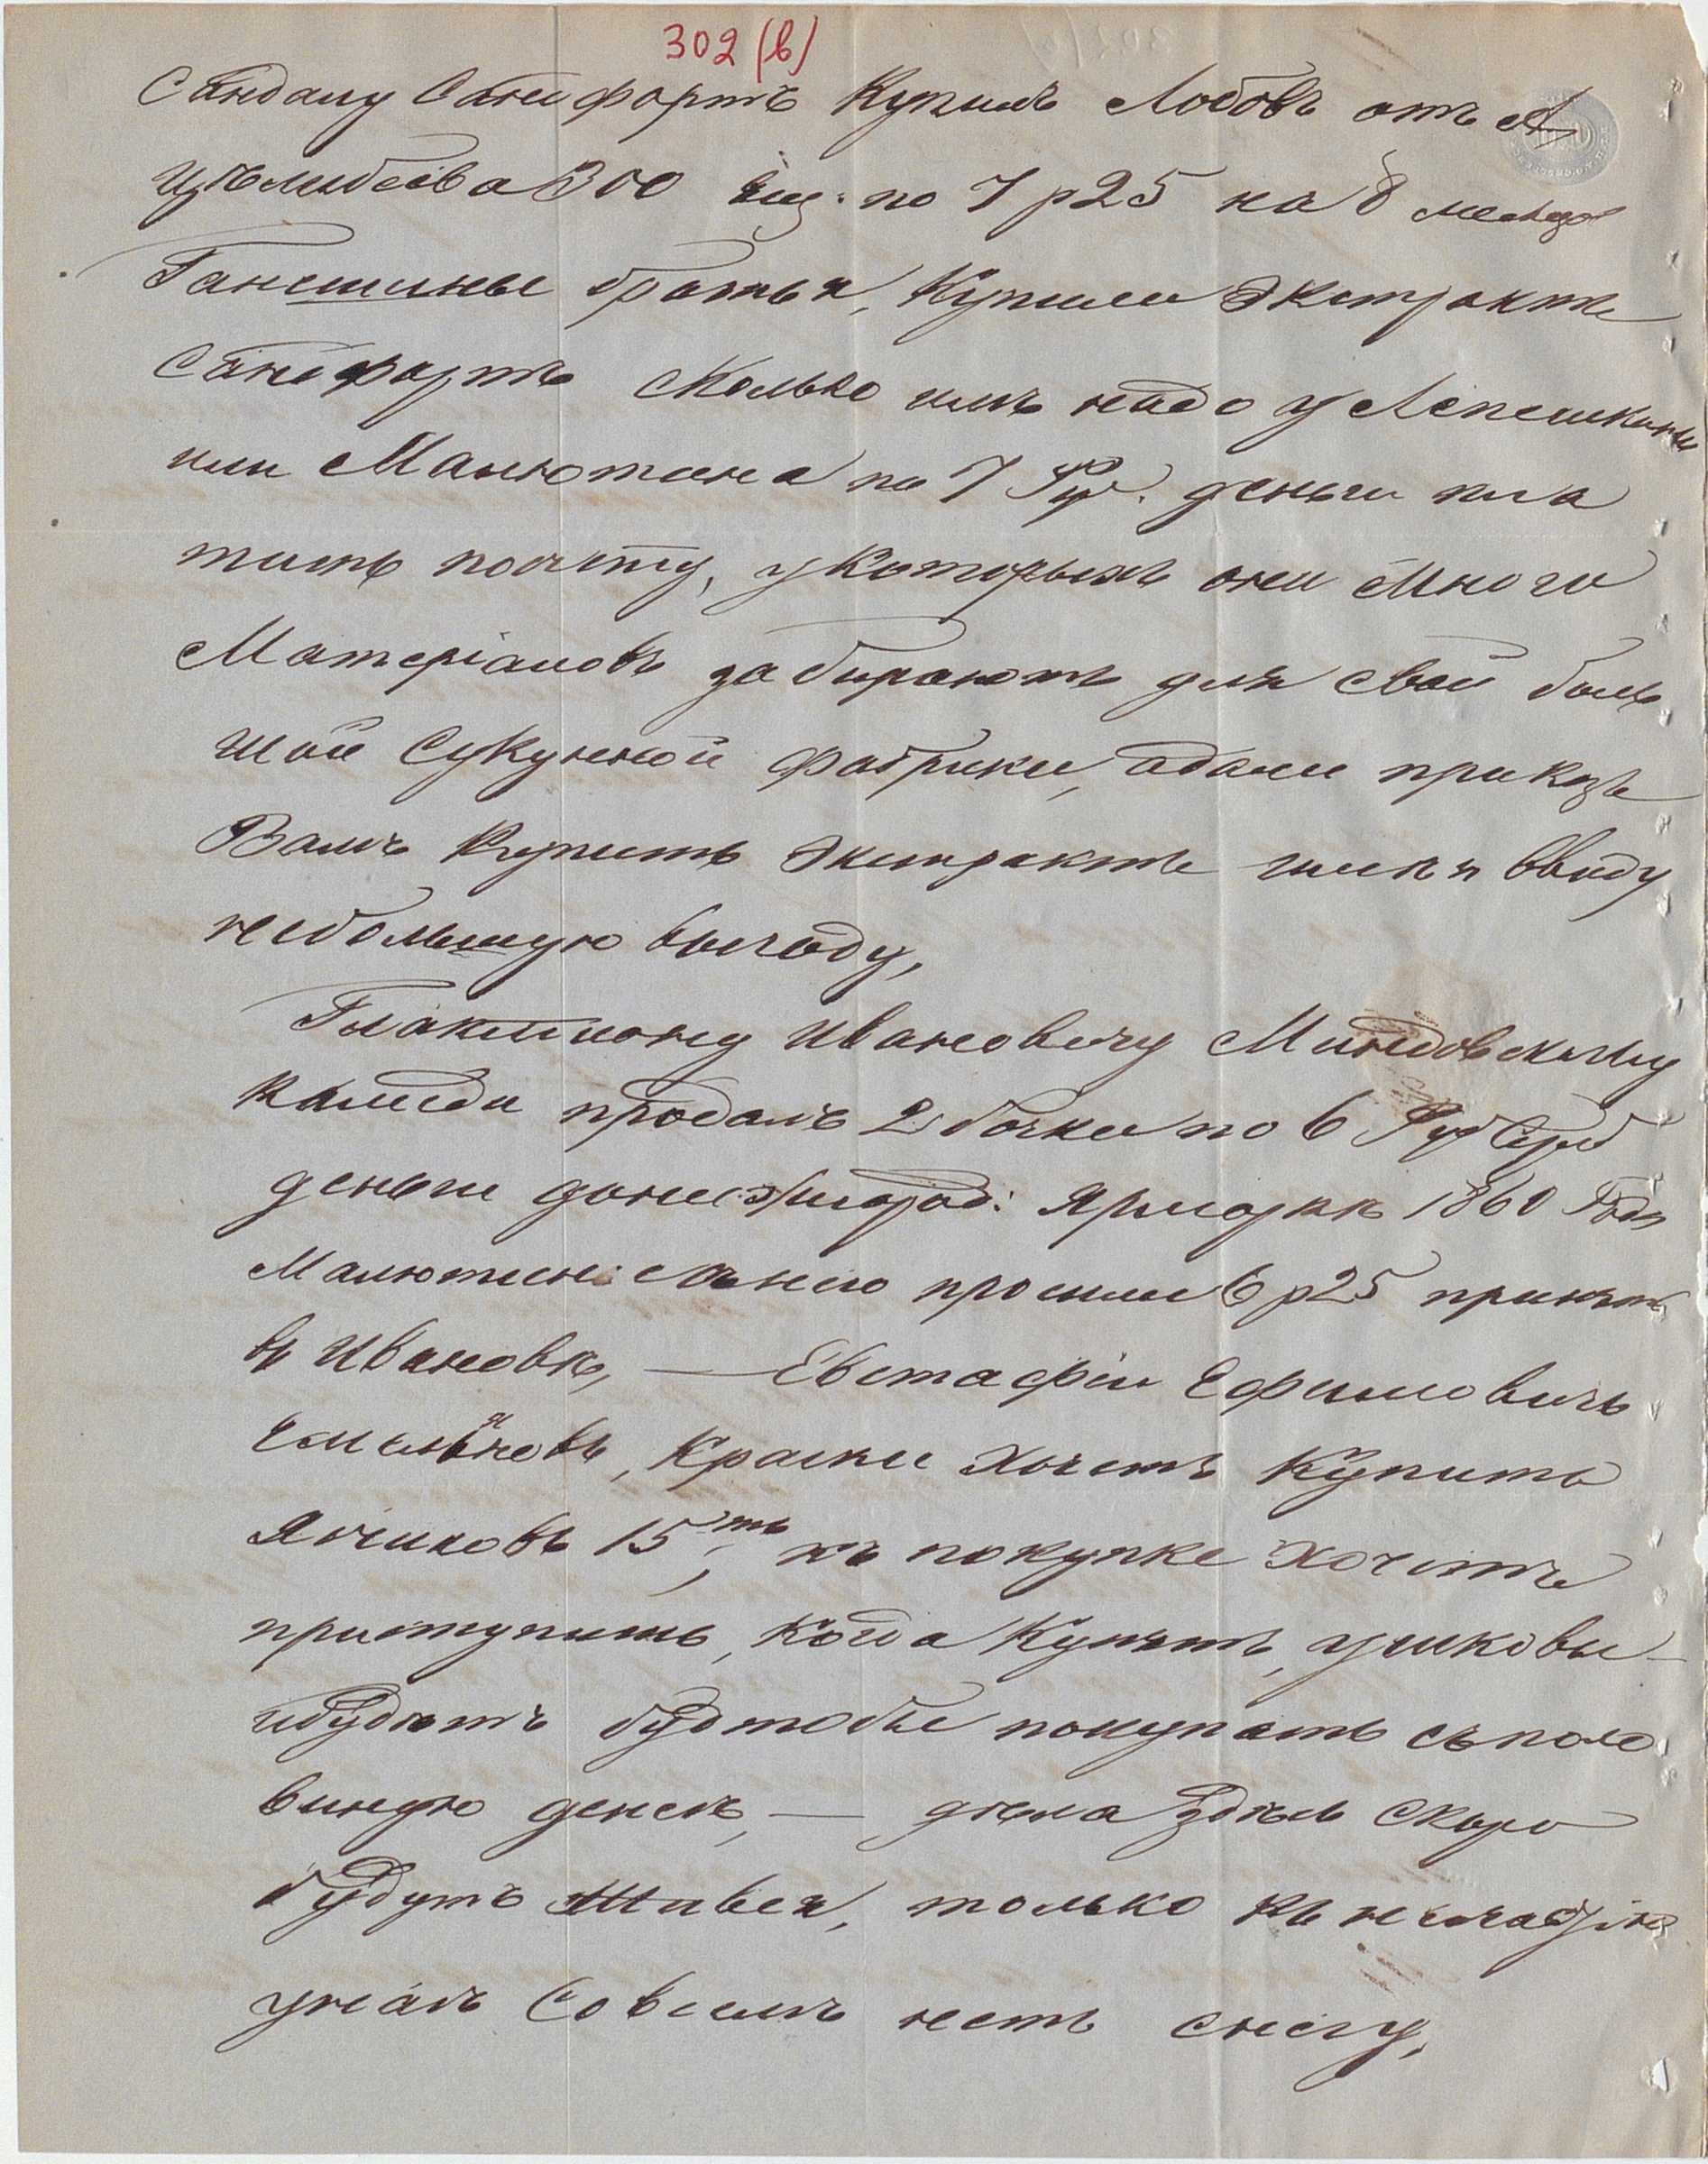 302 (в)
Сандалу Санфортъ Купилъ Лобовъ отъ А
Цѣлибеева 300 ящ. по 7 р 25 на 8 месяцов
Ганешины братья, Купили Экстрактъ
Санфортъ сколько имъ надо у Лепешкины
или Малютина по 7 Ру. деньги пла
тить посчету, у которыхъ они много
Матеріаловъ забираютъ для свой боль
шой Сукунной фабрики, адали приказъ
Вамъ Купить Экстрактъ имея ввиду
небольшую выгоду,
Галактиону Ивановичу Миндовскому
продалъ 2 бочки по 6 Руб Сереб
деньги донижигород: Ярморкѣ 1860 Года
Малютин снего просили 6 р 25 принят
в Ивановѣ, — Евстафіи Ефимович
Емельяновъ, Краски хочетъ Купить
Ящиковъ 15ть, къ покупке хочетъ
приступить, когда Купятъ, ушковы
небудютъ будтобы покупать съполо
виную денек, — дѣла здѣсь скоро
будутъ живея, только къ нещастію
унеалъ Совсемъ нетъ снегу,